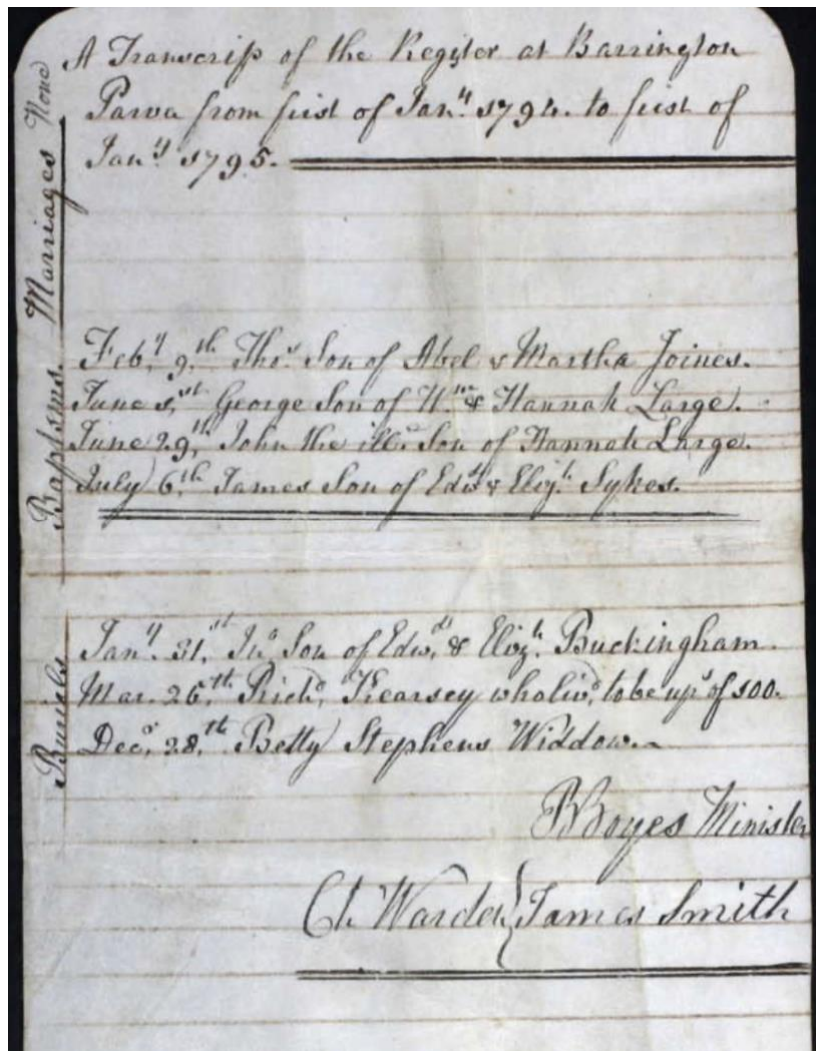 A Transcrip of the Register at Barrington
Parva from first of Jan.y 1794. to first of
Jan.y 1795.
Marriages None
Baptsms.
Feb.y 9,th Tho.s Son of Abel & Martha Joines.
June 1,st George Son of W.m & Hannah Large.
June 29,th John the ill.e Son of Hannah Large.
July 6,th James Son of Edw.d & Eliz.h Sykes.
Burials
Jan.y 31,st Jn.o Son of Edw.d & Eliz.h Buckingham.
Mar. 26,th Rich.d Kearsey who liv.d to be up.s of 100.
Dec.r 28,th Betty Stephens Widdow.
Boyes Minister
Ch. Warden } James Smith